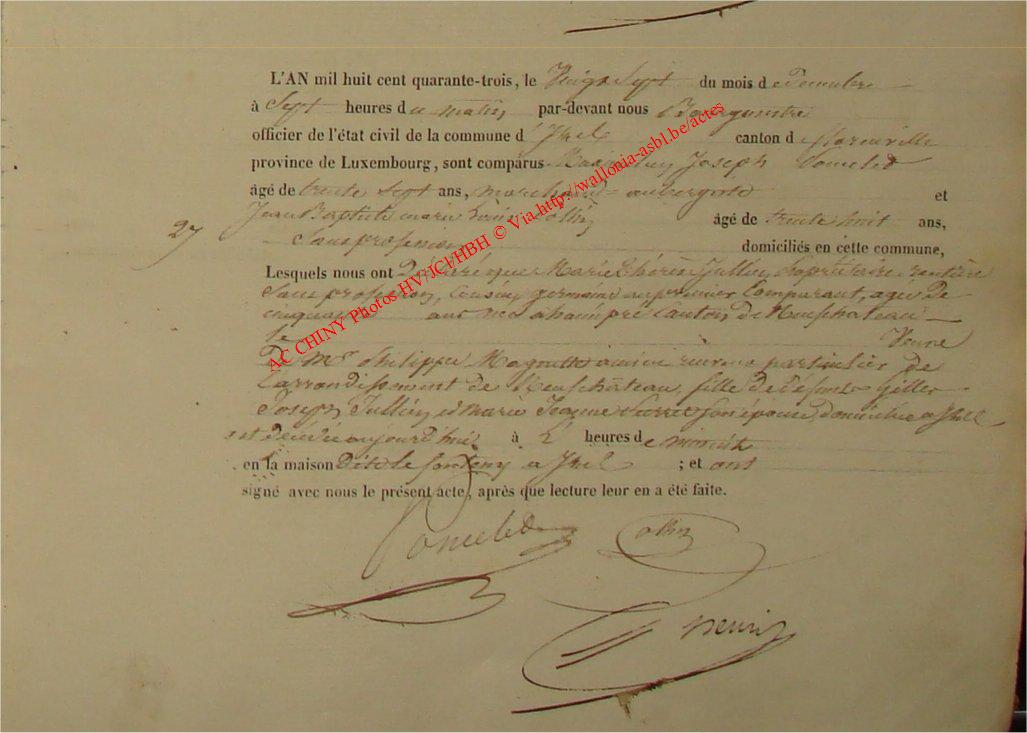 L'AN mil huit cent quarante-trois, le Vingt Sept du mois de Decembre
à Sept heures du matin par-devant nous Bourgmestre
officier de l'état civil de la commune d'Izel canton de florenville
province de Luxembourg, sont comparus Joseph Poncelet
âgé de trente Sept ans, marchand aubergiste et
Jean Baptiste marie Collin âgé de trente huit ans,
27
Sans profession domiciliés en cette commune,
Lesquels nous ont Déclaré que Marie Thérèse Jullien, propriétaire rentière
Sans profession, Cousine germaine au premier Comparant, agée De
cinquante ans née a hampré Canton de Neufchateau
Veuve
De Mr philippe ancien receveur particulier de
L'arrondissement de Neufchâteau, fille de défunts Gilles
Joseph Jullien et Marie Jeanne son épouse, domiciliée a Izel
est décédée aujourd'hui à 2 heures de minuit
en la maison dite a Izel ; et ont
signé avec nous le présent acte, après que lecture leur en a été faite.
Poncelet Collin
henri
AC CHINY Photos HV/JCl/HBH © Via http://wallonia-asbl.be/actes